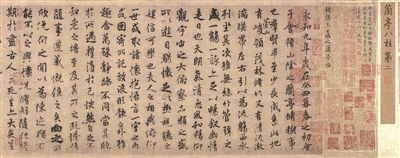 蘭亭八柱第二
褚模王羲之蘭亭帖
永和九年歲在癸丑暮春之初會
于會稽山陰之蘭亭脩稧事
也羣賢畢至少長咸集此地
有峻領茂林脩竹又有清流激
湍暎帶左右引以為流觴曲水
列坐其次雖無絲竹管弦之
盛一觴一詠亦足以暢敘幽情
是日也天朗氣清惠風和暢仰
觀宇宙之大俯察品類之盛
所以遊目騁懷足以極視聽之
娛信可樂也夫人之相與俯仰
一世或取諸懷抱悟言一室之內
或因寄所託放浪形骸之外雖
趣舍萬殊靜躁不同當其欣
於所遇暫得於己快然自足不
知老之將至及其所之既惓情
隨事遷感慨係之矣向之所
欣俛仰之間以為陳迹猶不
能不以之興懷況脩短隨化終
期於盡古人云死生亦大矣豈